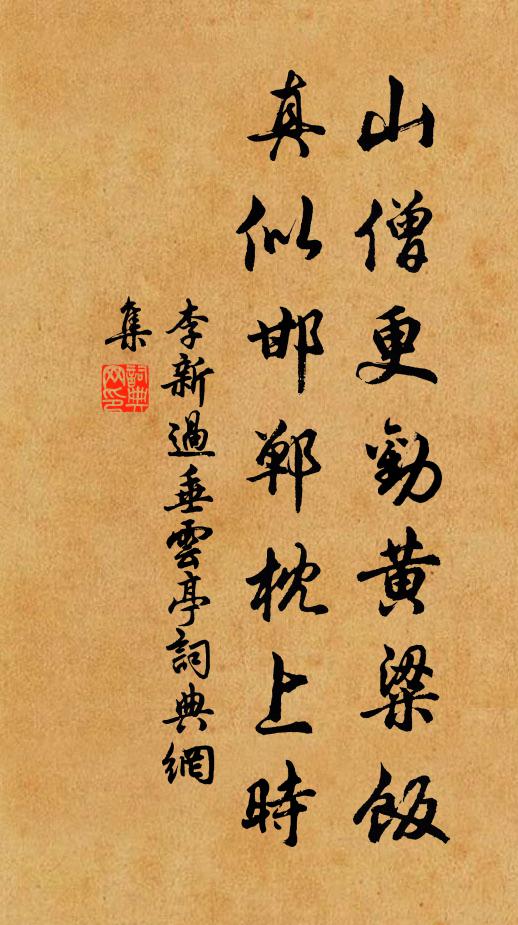 山僧更勸黄粱飯
真似邯鄲枕上時
李新過垂雲亭詞典網
集
詞典
网印